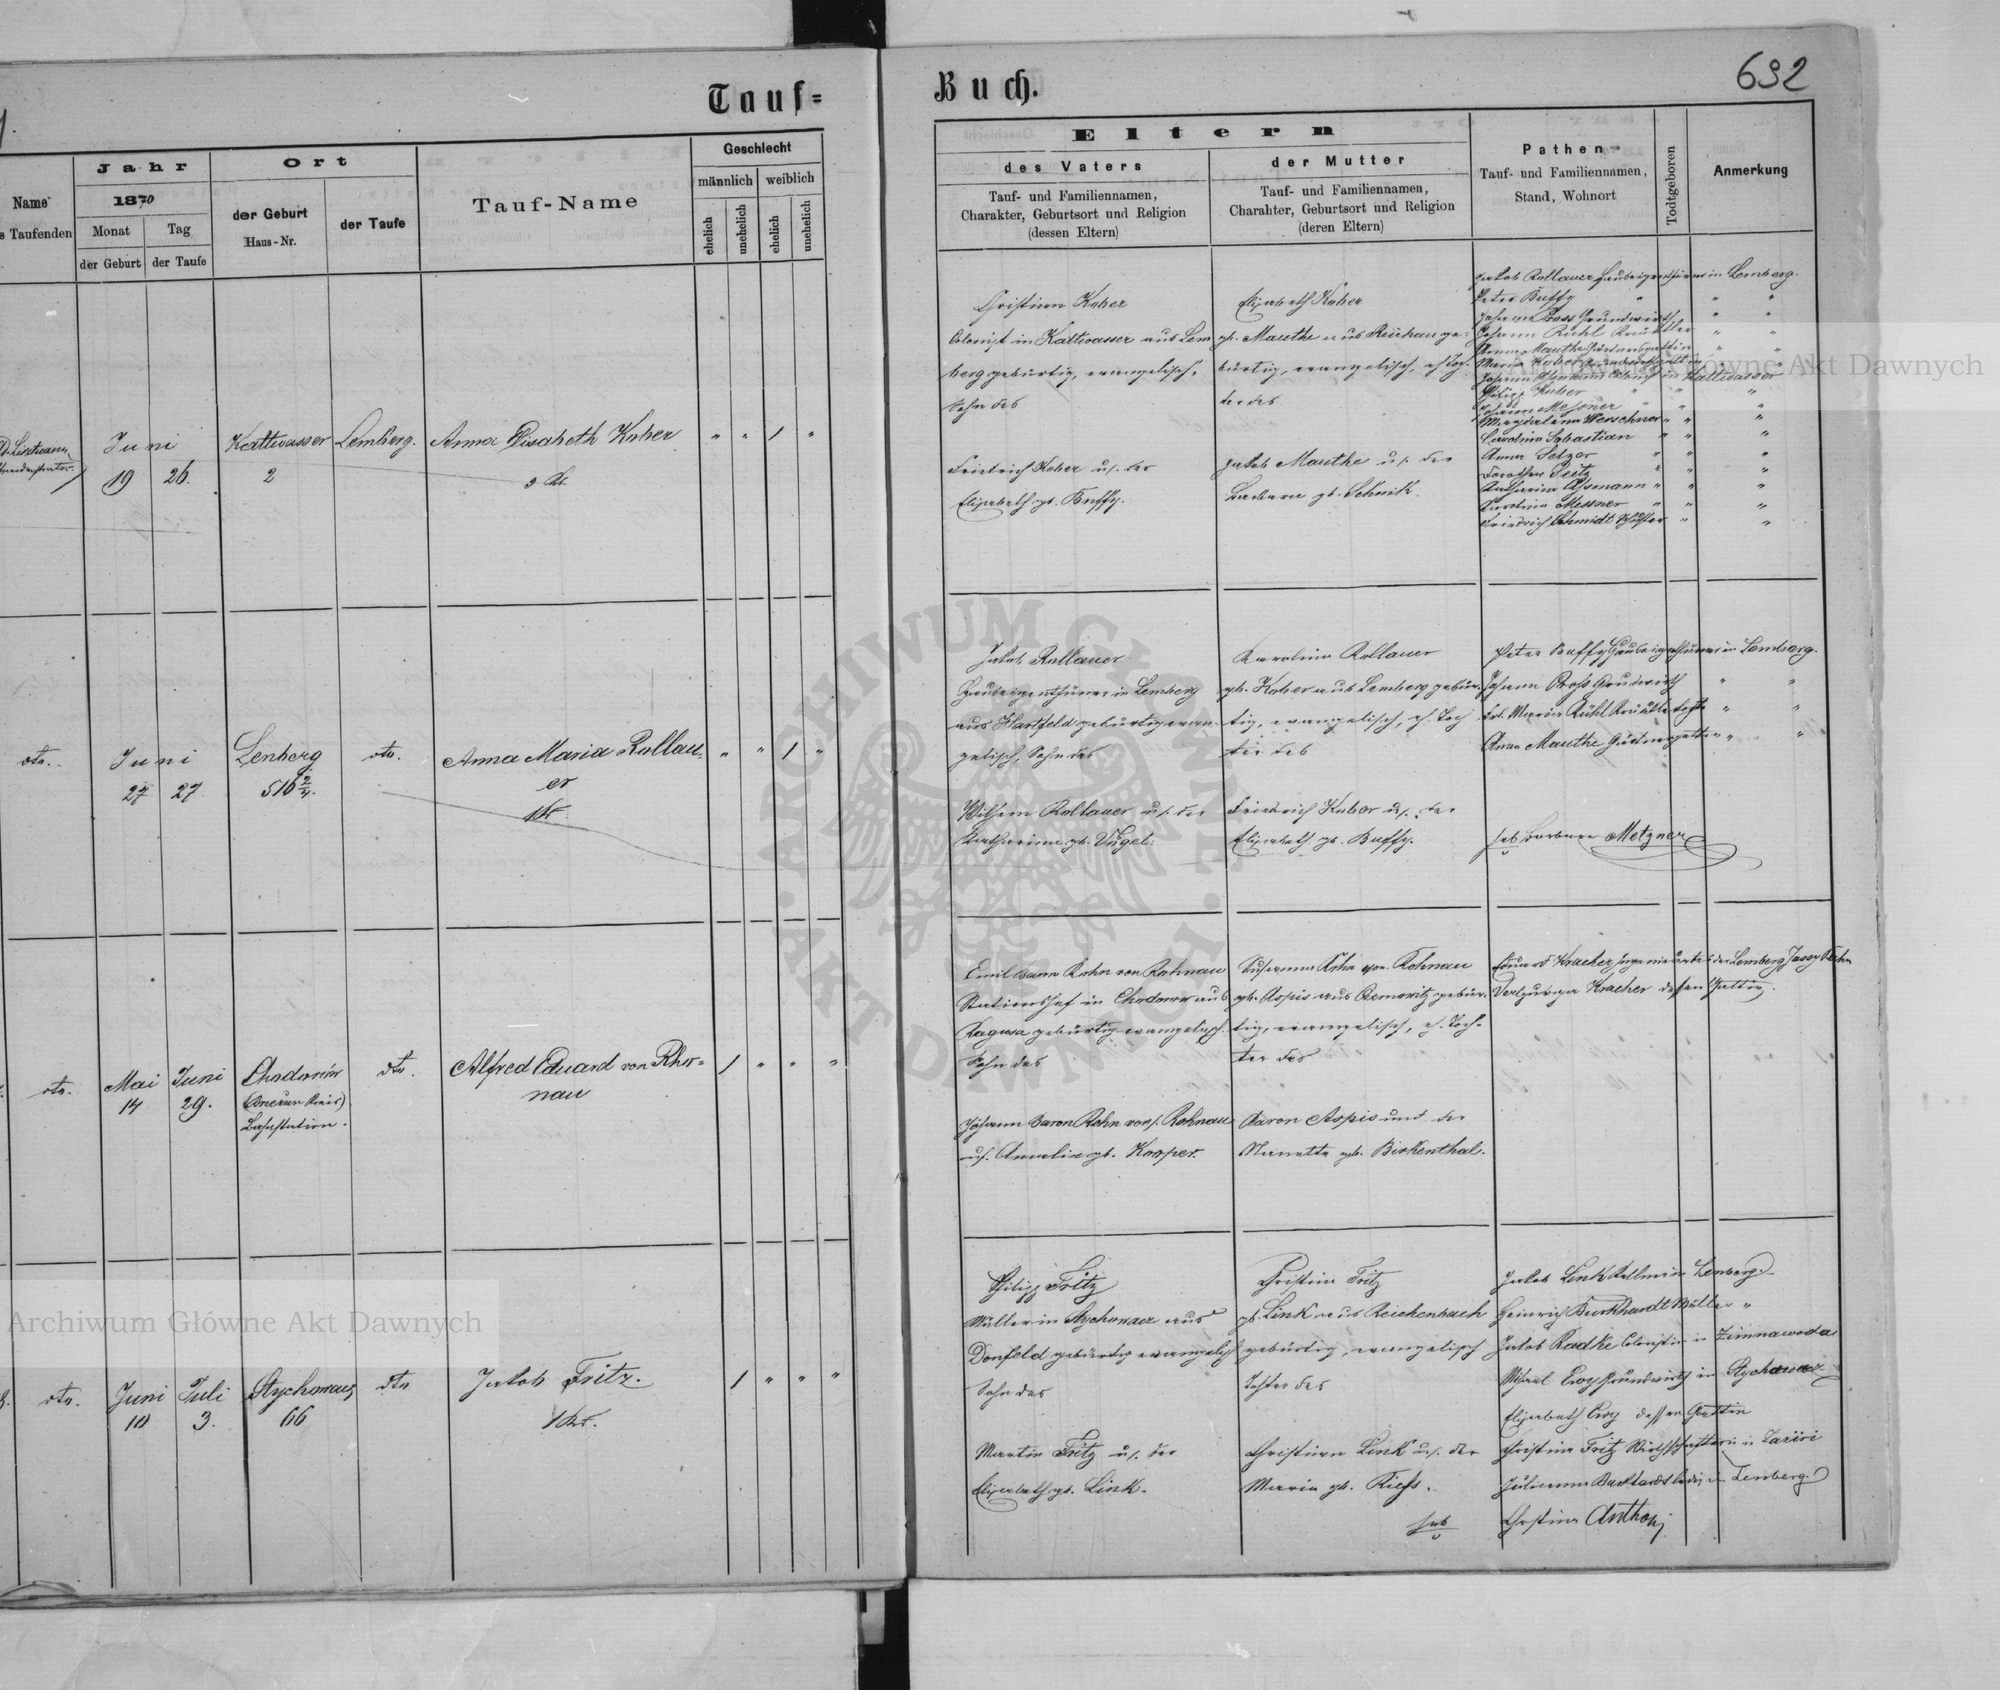 Tauf=
Buch.
692
Name
s Taufenden
Jahr
1870
Monat
Tag
der Geburt
der Taufe
Ort
der Geburt
Haus-Nr.
der Taufe
Tauf-Name
Geschlecht
männlich
weiblich
ehelich
unehelich
ehelich
unehelich
Eltern
des Vaters
Tauf- und Familiennamen,
Charakter, Geburtsort und Religion
(dessen Eltern)
der Mutter
Tauf- und Familiennamen,
Charahter, Geburtsort und Religion
(deren Eltern)
Pathen
Tauf- und Familiennamen,
Stand, Wohnort
Todtgeboren
Anmerkung
Juni
19 26.
Kaltwasser
2
Lemberg.
Anna Elisabeth Koher
" " 1 "
Christian Koher
Colonist in Kaltwasser aus Lem
berg gebürtig, evangelisch,
Sohn des
Friedrich Koher u. der
Elisabeth gb. Buffy.
Elisabeth Koher
gb. Mauthe aus Reichau ge-
bürtig, evangelisch, eh. Toch-
ter des
Jakob Mauthe u. der
Barbara gb. Schnik.
Jakob Rollauer Hauseigenthümer in Lemberg.
Peter Buffy " " "
Johann Pross Grundwirth " "
Johann Rühl
Anna Mauthe
Maria Koher
Johann in Kaltwasser
Philipp Koher " " "
Messner " " "
Magdalena Werschner " " "
Carolina Sebastian " " "
Anna Selzer " " "
Dorothea Fritz " " "
Katharina Assmann " " "
Karolina Messner " " "
Friedrich Schmidt " "
dto.
Juni
27 27
Lemberg
516 2/4.
dto.
Anna Maria Rollau-
er
" " 1 "
Jakob Rollauer
Hauseigenthümer in Lemberg
aus Hartfeld gebürtig evan-
gelisch, Sohn des
Wilhem Rollauer u. der
Katharina gb. Vogel.
Karolina Rollauer
gb. Koher aus Lemberg gebür-
tig, evangelisch, eh. Toch
ter des
Friedrich Koher u. der
Elisabeth gb. Buffy.
Peter Buffy Hauseigenthümer in Lemberg.
Johann Pross Grundwirth " "
Maria Rühl " "
Anna Mauthe Gärtnersgattin " "
Heb. Barbara Metzner
dto.
Mai Juni
14 29.
Chodorów
(Brezan Kreis)
Bahnstation.
dto.
Alfred Eduard von Rho-
nau
1 " " "
Emil Baron Rohn von Rohnau
Stationschef in Chodorow aus
Ragusa gebürtig evangelisch
Sohn des
Johann Baron Rohn von Rohnau
u. Amalie gb. Kosper.
Susanna Rohn von Rohnau
gb. Aspis aus Czernowitz gebür-
tig, evangelisch, eh. Toch-
ter des
Aaron Aspis und der
Nanette geb. Birkenthal.
Eduard Kracher Ingenieur der Lemberg Jassy
Walpurga Kracher dessen Gattin.
dto.
Juni Juli
10 3.
66
dto
Jakob Fritz.
1 " " "
Philipp Fritz
Müller in aus
Dornfeld gebürtig evangelisch
Sohn des
Martin Fritz u. der
Elisabeth gb. Link.
Christina Fritz
gb. Link aus Reichenbach
gebürtig, evangelisch
Tochter des
Christian Link u. der
Maria gb. Riess.
Jakob Link in Lemberg.
Heinrich Burkhardt Müller "
Jakob Radke Colonist in Zimnawoda
Michael Ewy Grundwirth in
Elisabeth Ewy dessen Gattin
Christina Fritz in
Juliana ledig in Lemberg.
Heb.
Christina Anthony
Archiwum Główne Akt Dawnych
Archiwum Główne Akt Dawnych
ARCHIWUM GŁÓWNE
AKT DAWNYCH